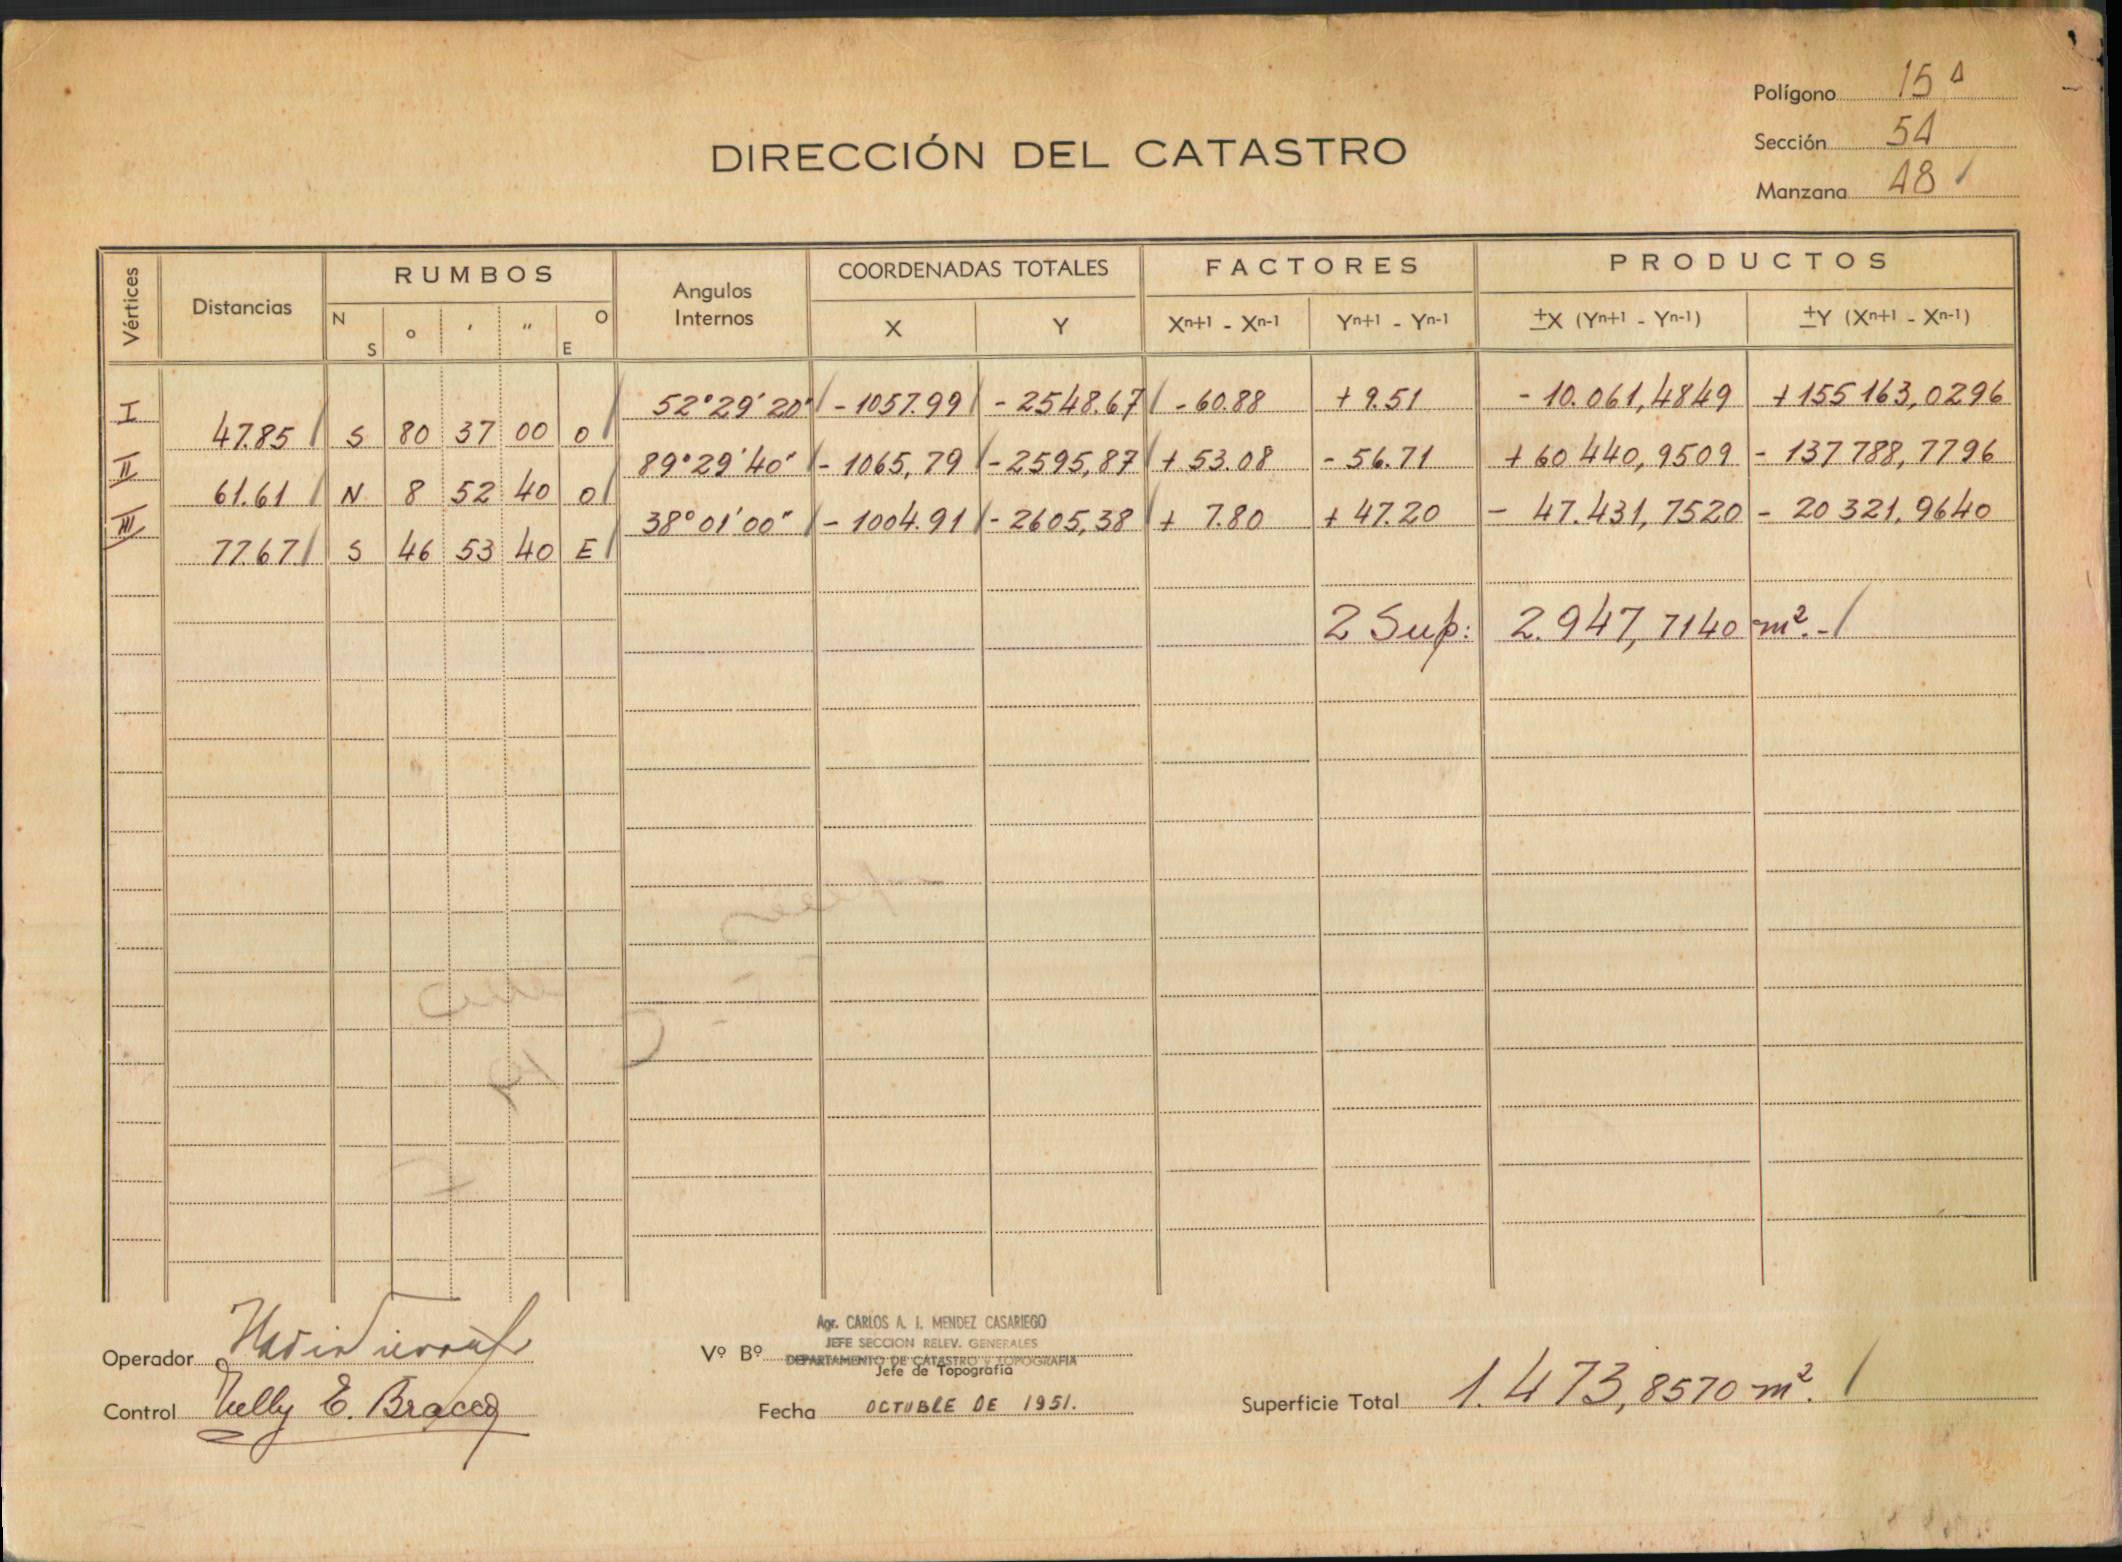 Polígono 15 A
Sección 54
Manzana 48
DIRECCIÓN DEL CATASTRO
Vértices Distancias RUMBOS Angulos Internos COORDENADAS TOTALES FACTORES PRODUCTOS
N S ° ' " O E X Y Xn+1 - Xn-1 Yn+1 - Yn-1 ±X (Yn+1 - Yn-1) ±Y (Xn+1 - Xn-1)
I 52°29'20" - 1057.99 - 2548.67 - 60.88 + 9.51 - 10.061,4849 + 155 163,0296
47.85 S 80 37 00 O
II 89°29'40" - 1065,79 - 2595,87 + 53.08 - 56.71 + 60 440,9509 - 137 788,7796
61.61 N 8 52 40 O
III 38°01'00" - 1004.91 - 2605,38 + 7.80 + 47.20 - 47.431,7520 - 20 321,9640
77.67 S 46 53 40 E
2 Sup: 2.947,7140 m².-
Agr. CARLOS A. I. MENDEZ CASARIEGO
JEFE SECCION RELEV. GENERALES
Operador Vº Bº DEPARTAMENTO DE CATASTRO Y TOPOGRAFIA
Jefe de Topografía
Control Nelly E. Bracco Fecha OCTUBRE DE 1951. Superficie Total 1.473,8570 m².